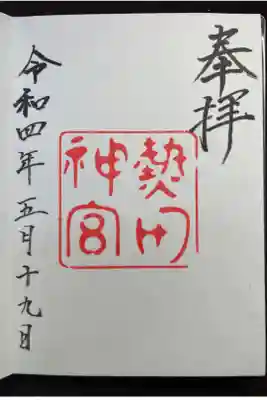 奉拝
熱田
神宮
令和四年五月十九日